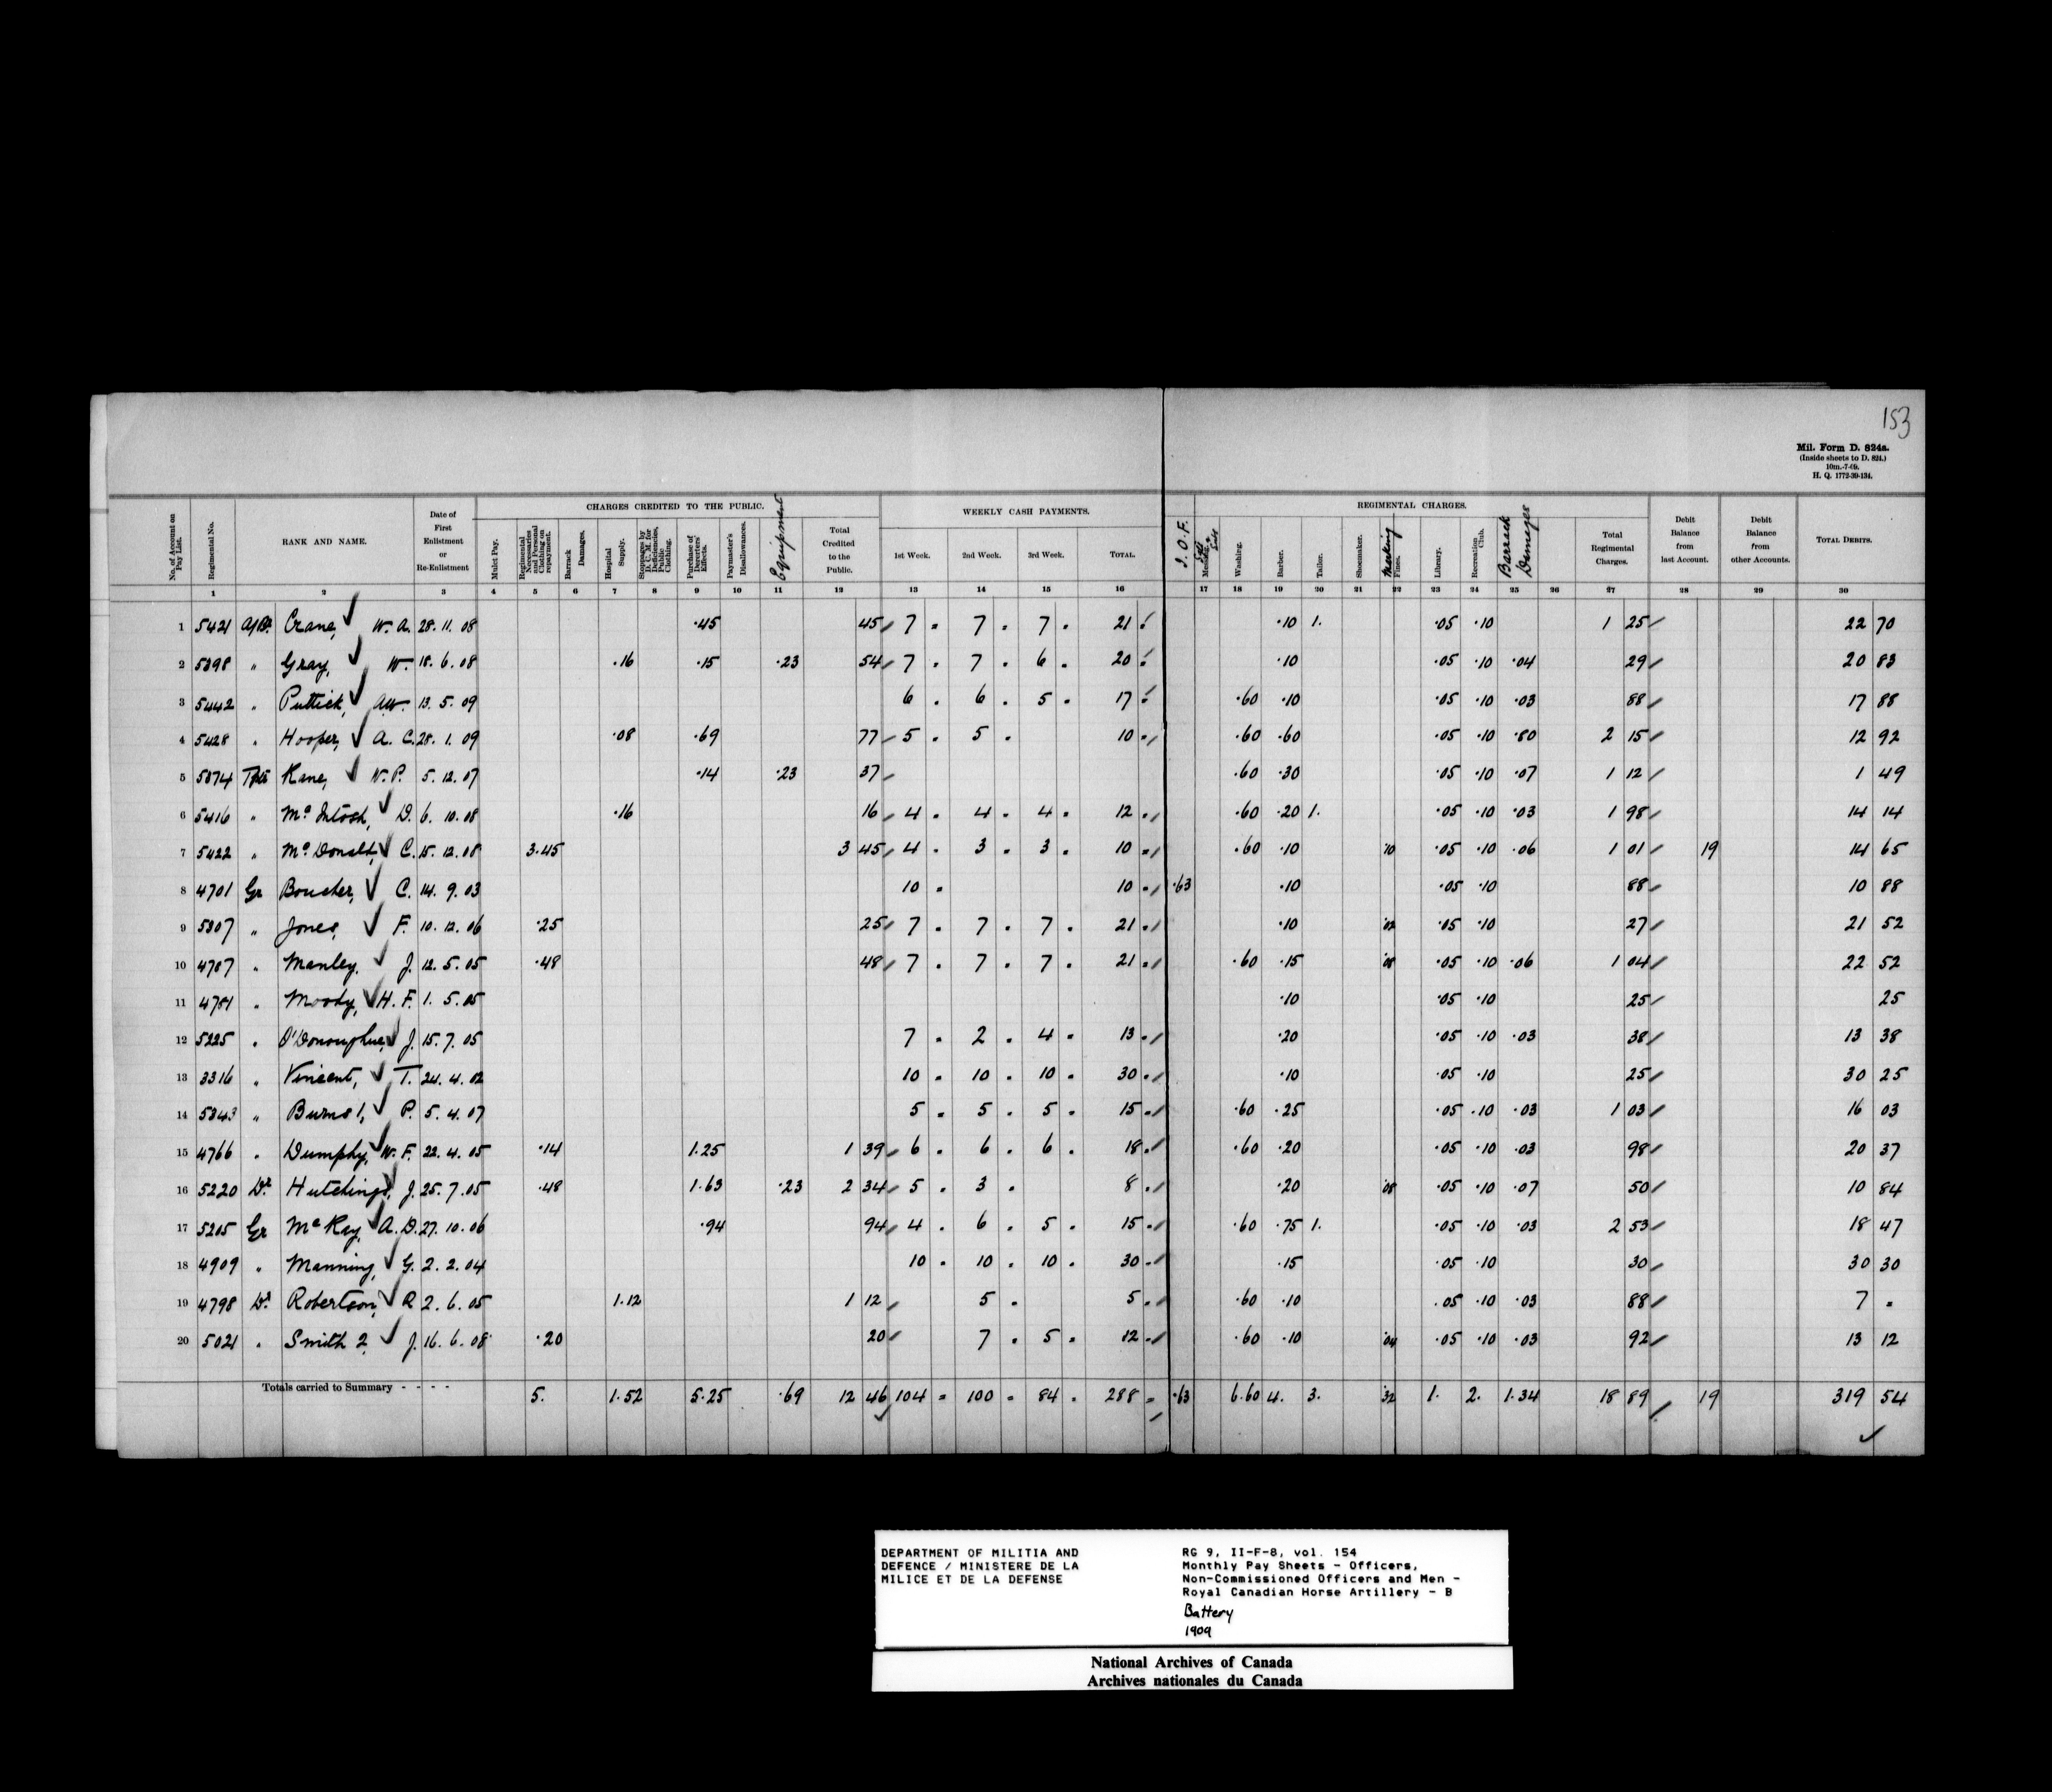 153
Mil. Form D. 824a.
(Inside sheets to D. 824.)
10m.-7-09.
H. Q. 1772-39-134.
No. of Account on Pay List.
Regimental No.
RANK AND NAME.
Date of First Enlistment or Re-Enlistment
CHARGES CREDITED TO THE PUBLIC.
Mulct Pay.
Regimental Necessaries and Personal Clothing on repayment.
Barrack Damages.
Hospital Supply.
Stoppages by D. C. M. for Deficiencies, Public Clothing.
Purchase of Deserters' Effects.
Paymaster's Disallowances.
Equipment
Total Credited to the Public.
WEEKLY CASH PAYMENTS.
1st Week.
2nd Week.
3rd Week.
TOTAL.
I. O. F.
REGIMENTAL CHARGES.
Washing.
Barber.
Tailor.
Shoemaker.
Marking
Fines.
Library.
Recreation Club.
Barrack Damages
Total Regimental Charges.
Debit Balance from last Account.
Debit Balance from other Accounts.
TOTAL DEBITS.
1 2 3 4 5 6 7 8 9 10 11 12 13 14 15 16 17 18 19 20 21 22 23 24 25 26 27 28 29 30
1 5421 A/Br Crane, W. A. 28. 11. 08 .45 45 7 . 7 . 7 . 21 . .10 1. .05 .10 1 25 22 70
2 5398 " Gray, W. 18. 6. 08 .16 .15 .23 54 7 . 7 . 6 . 20 . .10 .05 .10 .04 29 20 83
3 5442 " Puttick, A.W. 13. 5. 09 6 . 6 . 5 . 17 . .60 .10 .05 .10 .03 88 17 88
4 5428 " Hooper, A. C. 28. 1. 09 .08 .69 77 5 . 5 . 10 . .60 .60 .05 .10 .80 2 15 12 92
5 5374 Kane, W. P. 5. 12. 07 .14 .23 37 .60 .30 .05 .10 .07 1 12 1 49
6 5416 " McIntosh, D. 6. 10. 08 .16 16 4 . 4 . 4 . 12 . .60 .20 1. .05 .10 .03 1 98 14 14
7 5422 " McDonald, C. 15. 12. 08 3.45 3 45 4 . 3 . 3 . 10 . .60 .10 .10 .05 .10 .06 1 01 19 14 65
8 4701 Gr Boucher, C. 14. 9. 03 10 . 10 . .63 .10 .05 .10 88 10 88
9 5307 " Jones, F. 10. 12. 06 .25 25 7 . 7 . 7 . 21 . .10 .02 .05 .10 27 21 52
10 4787 " Manley, J. 12. 5. 05 .48 48 7 . 7 . 7 . 21 . .60 .15 .08 .05 .10 .06 1 04 22 52
11 4781 " Moody, H. F. 1. 5. 05 .10 .05 .10 25 25
12 5225 " O'Donoughue, J. 15. 7. 05 7 . 2 . 4 . 13 . .20 .05 .10 .03 38 13 38
13 3316 " Vincent, T. 24. 4. 02 10 . 10 . 10 . 30 . .10 .05 .10 25 30 25
14 5343 " Burns 1, P. 5. 4. 07 5 . 5 . 5 . 15 . .60 .25 .05 .10 .03 1 03 16 03
15 4766 " Dumphy, W. F. 22. 4. 05 .14 1.25 1 39 6 . 6 . 6 . 18 . .60 .20 .05 .10 .03 98 20 37
16 5220 Dr Hutchings, J. 25. 7. 05 .48 1.63 .23 2 34 5 . 3 . 8 . .20 .08 .05 .10 .07 50 10 84
17 5205 Gr McKay, A. D. 27. 10. 06 .94 94 4 . 6 . 5 . 15 . .60 .75 1. .05 .10 .03 2 53 18 47
18 4909 " Manning, G. 2. 2. 04 10 . 10 . 10 . 30 . .15 .05 .10 30 30 30
19 4798 Dr Robertson, R 2. 6. 05 1.12 1 12 5 . 5 . .60 .10 .05 .10 .03 88 7 .
20 5021 " Smith 2, J. 16. 6. 08 .20 20 7 . 5 . 12 . .60 .10 .04 .05 .10 .03 92 13 12
Totals carried to Summary - - - - 5. 1.52 5.25 .69 12 46 104 = 100 = 84 . 288 = .63 6.60 4. 3. .32 1. 2. 1.34 18 89 19 319 54
DEPARTMENT OF MILITIA AND
DEFENCE / MINISTERE DE LA
MILICE ET DE LA DEFENSE
RG 9, II-F-8, vol. 154
Monthly Pay Sheets - Officers,
Non-Commissioned Officers and Men -
Royal Canadian Horse Artillery - B
Battery
1909
National Archives of Canada
Archives nationales du Canada